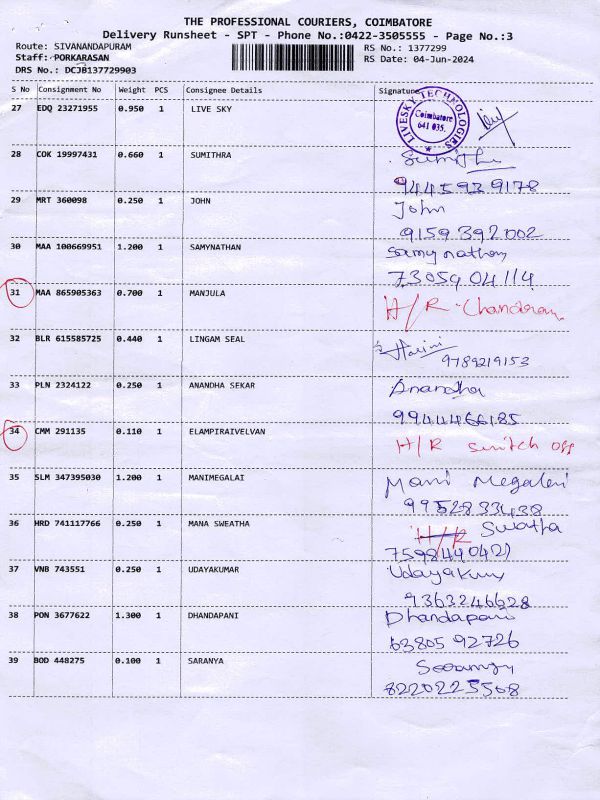 THE PROFESSIONAL COURIERS, COIMBATORE
Delivery Runsheet - SPT - Phone No.:0422-3505555 - Page No.:3
Route: SIVANANDAPURAM RS No.: 1377299
Staff: PORKARASAN RS Date: 04-Jun-2024
DRS No.: DCJB137729903
S No Consignment No Weight PCS Consignee Details Signature
27 EDQ 23271955 0.950 1 LIVE SKY
LIVESKY TECHNOLOGIES
Coimbatore
641 035.
28 COK 19997431 0.660 1 SUMITHRA
9445939178
29 MRT 360098 0.250 1 JOHN John
9159 392002
30 MAA 100669951 1.200 1 SAMYNATHAN Samynathan
73059 04114
31 MAA 865905363 0.700 1 MANJULA H/R
32 BLR 615585725 0.440 1 LINGAM SEAL Harini
9789219153
33 PLN 2324122 0.250 1 ANANDHA SEKAR Anandha
9944466185
34 CMM 291135 0.110 1 ELAMPIRAIVELVAN H/R switch off
35 SLM 347395030 1.200 1 MANIMEGALAI Mani Megalai
9952833438
36 HRD 741117766 0.250 1 MANA SWEATHA H/R Swatha
7598440421
37 VNB 743551 0.250 1 UDAYAKUMAR Udayakum
9363246628
38 PON 3677622 1.300 1 DHANDAPANI Dhandapani
63805 92726
39 BOD 448275 0.100 1 SARANYA
8220225568